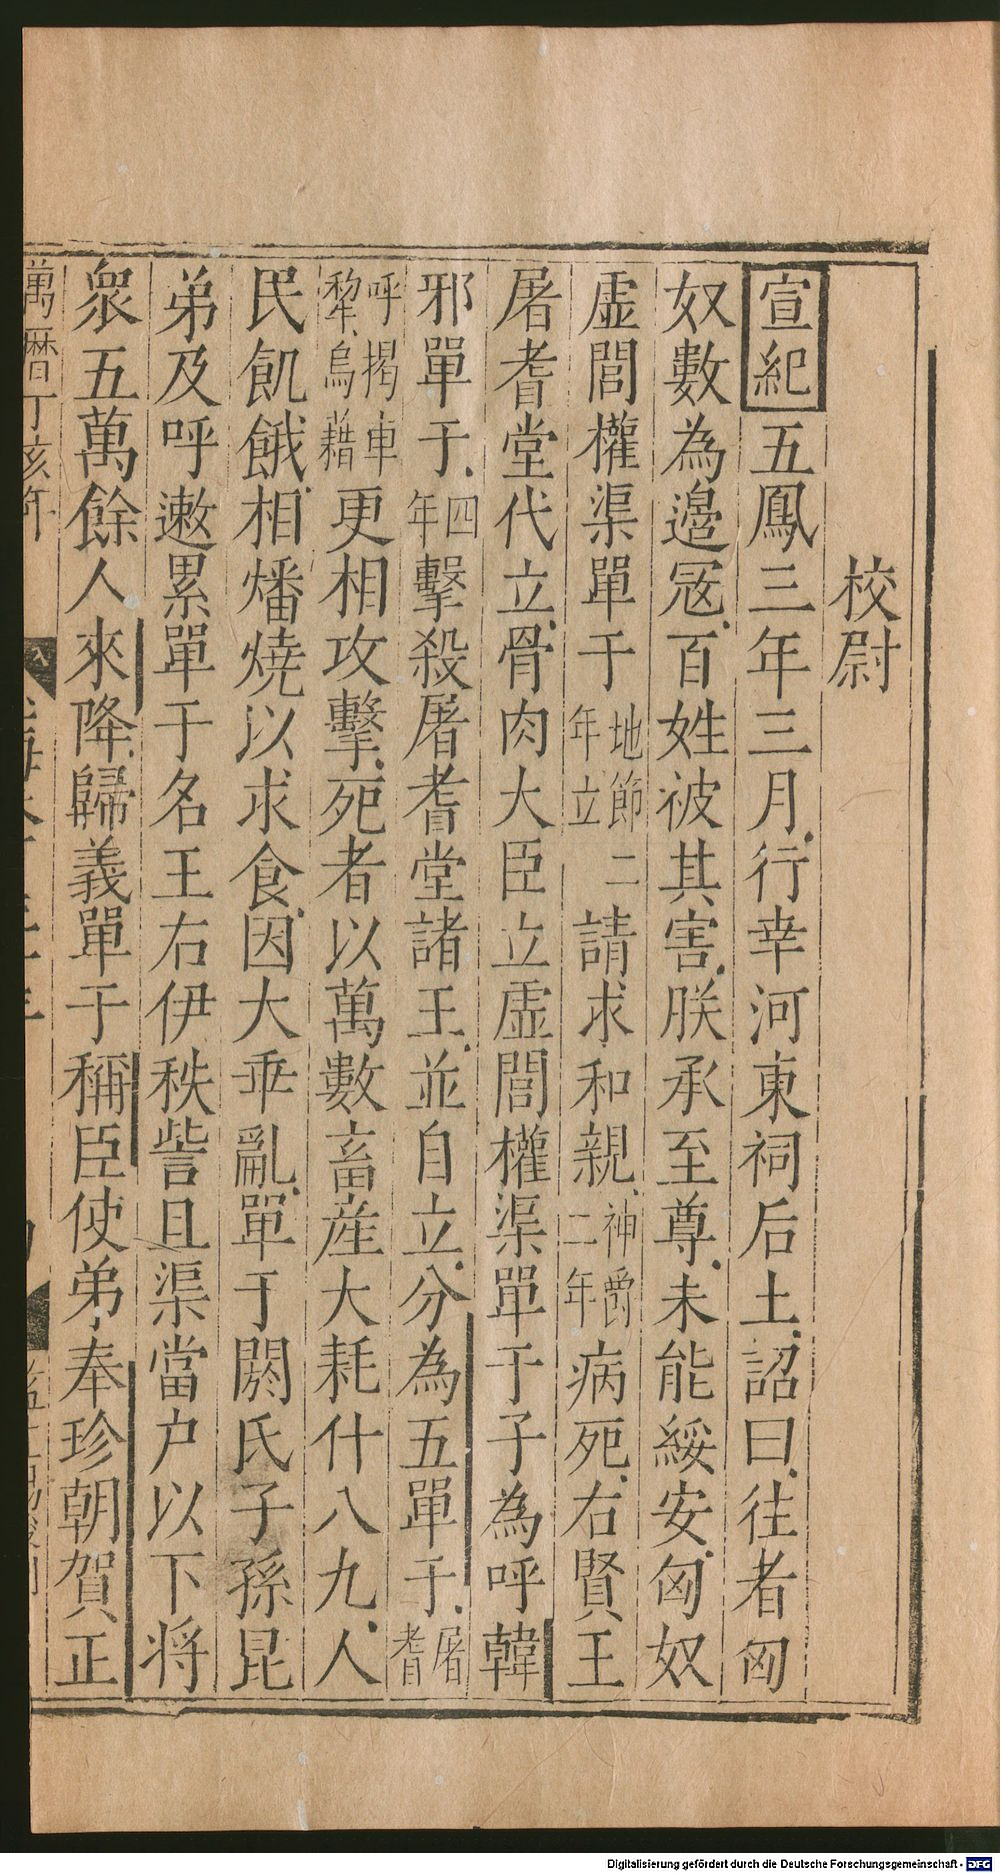 校尉
宣紀五鳳三年三月行幸河東祠后土詔曰往者匈
奴數為邊寇百姓被其害朕承至尊未能綏安匈奴
虛閭權渠單于地節二年立請求和親神爵二年病死右賢王
屠耆堂代立骨肉大臣立虛閭權渠單于子為呼韓
邪單于四年擊殺屠耆堂諸王並自立分為五單于屠耆
呼揭車犂烏藉更相攻擊死者以萬數畜產大耗什八九人
民飢餓相燔燒以求食因大乖亂單于閼氏子孫昆
弟及呼遬累單于名王右伊秩訾且渠當户以下将
衆五萬餘人來降歸義單于稱臣使弟奉珍朝賀正
萬曆丁亥年
Digitalisierung gefördert durch die Deutsche Forschungsgemeinschaft - DFG